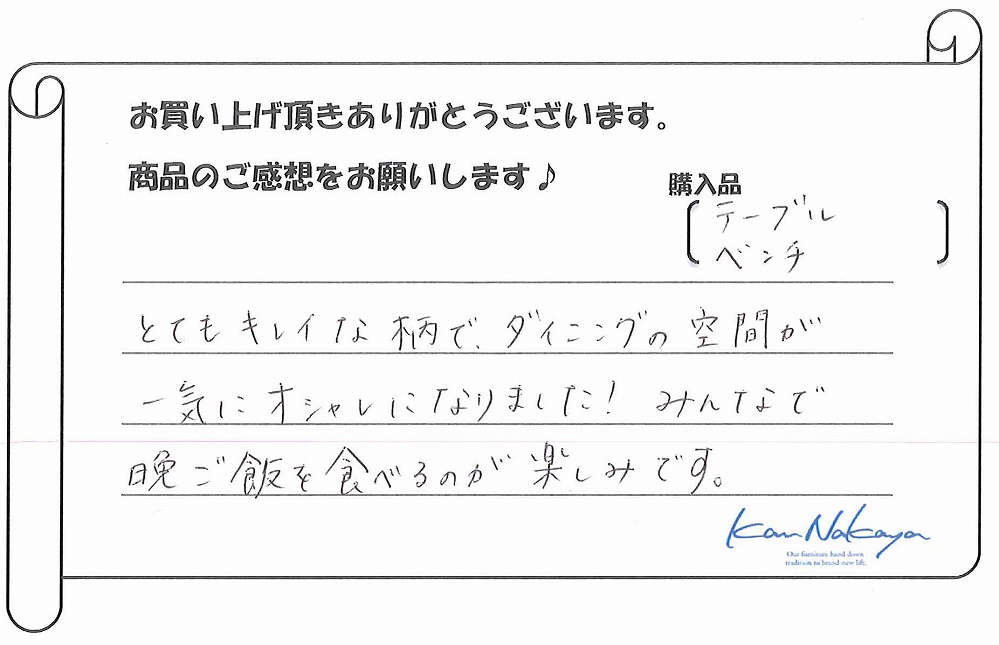 お買い上げ頂きありがとうございます。
商品のご感想をお願いします♪
購入品
テーブル
ベンチ
とてもキレイな柄で、ダイニングの空間が
一気にオシャレになりました！ みんなで
晩ご飯を食べるのが楽しみです。
Kan Nakaya
Our furniture hand down
tradition to brand-new life.